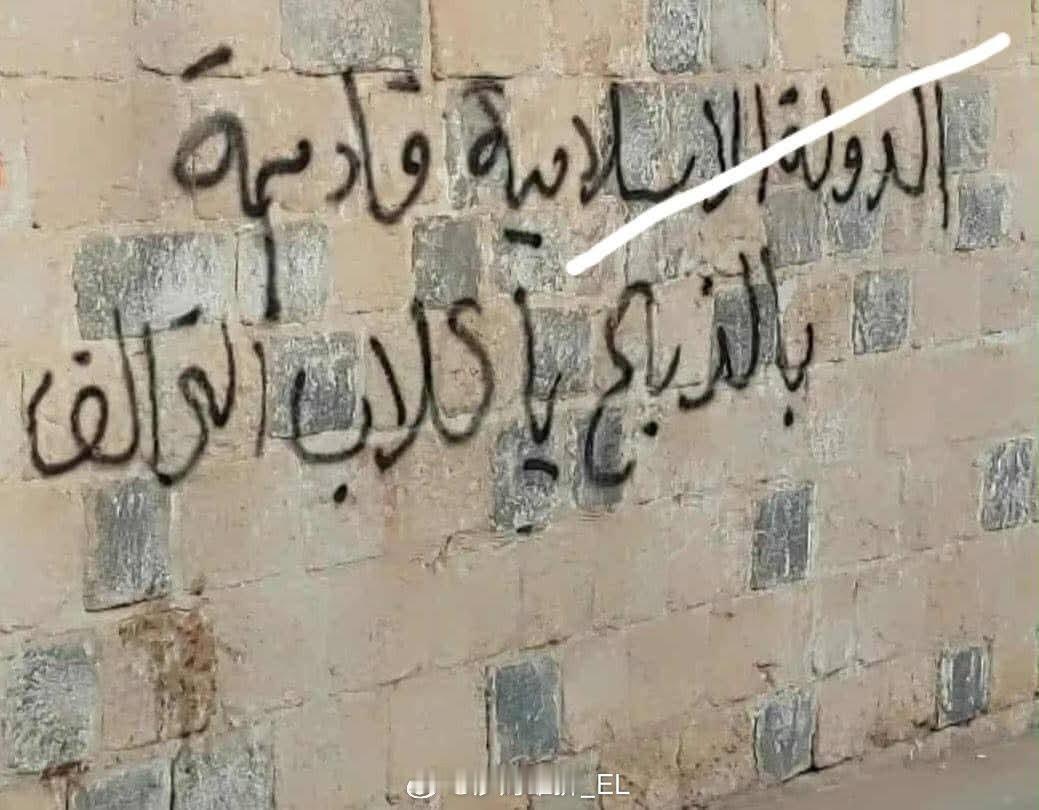 الدولة الاسلامية قادمة
بالذباح يا كلاب التحالف
_EL